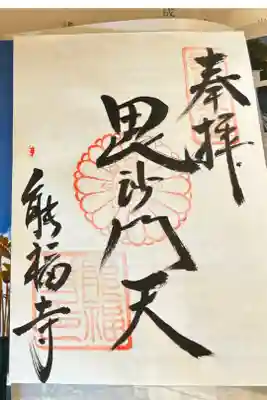 奉拝
毘沙門天
能福寺